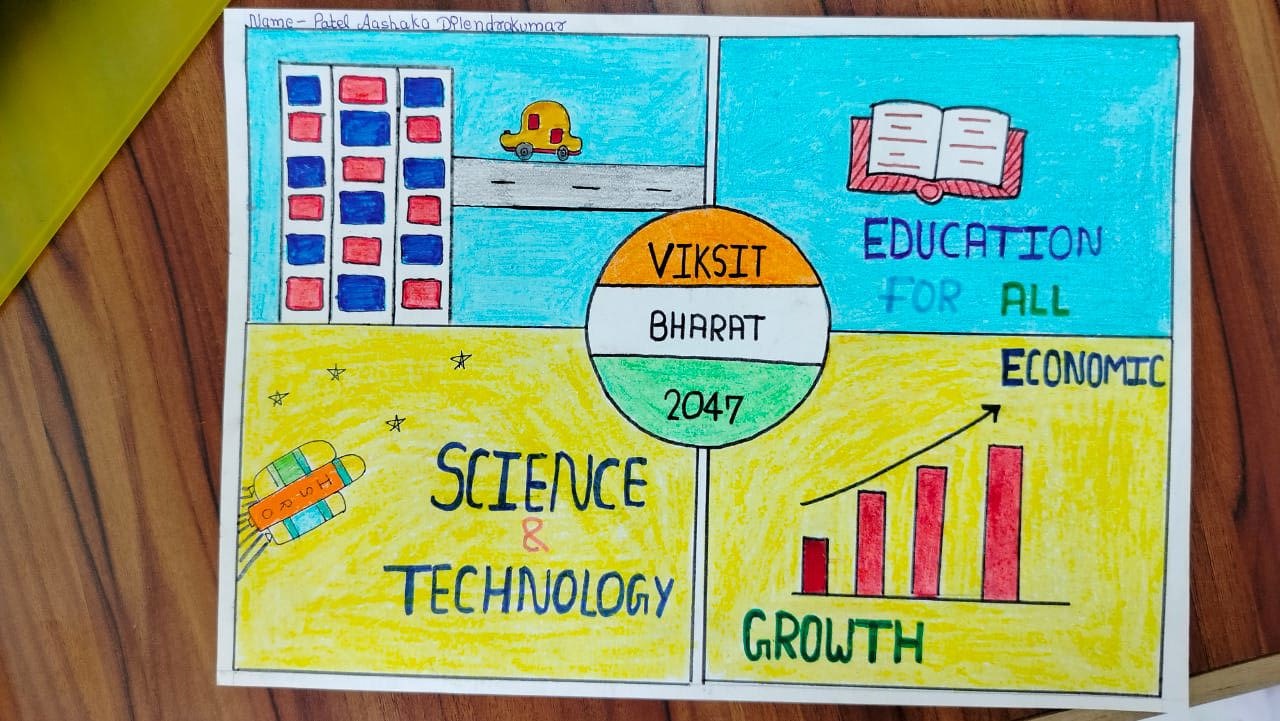 Name - Patel Aashaka Dilendrakumar
VIKSIT
BHARAT
2047
EDUCATION
FOR ALL
SCIENCE
&
TECHNOLOGY
ECONOMIC
GROWTH